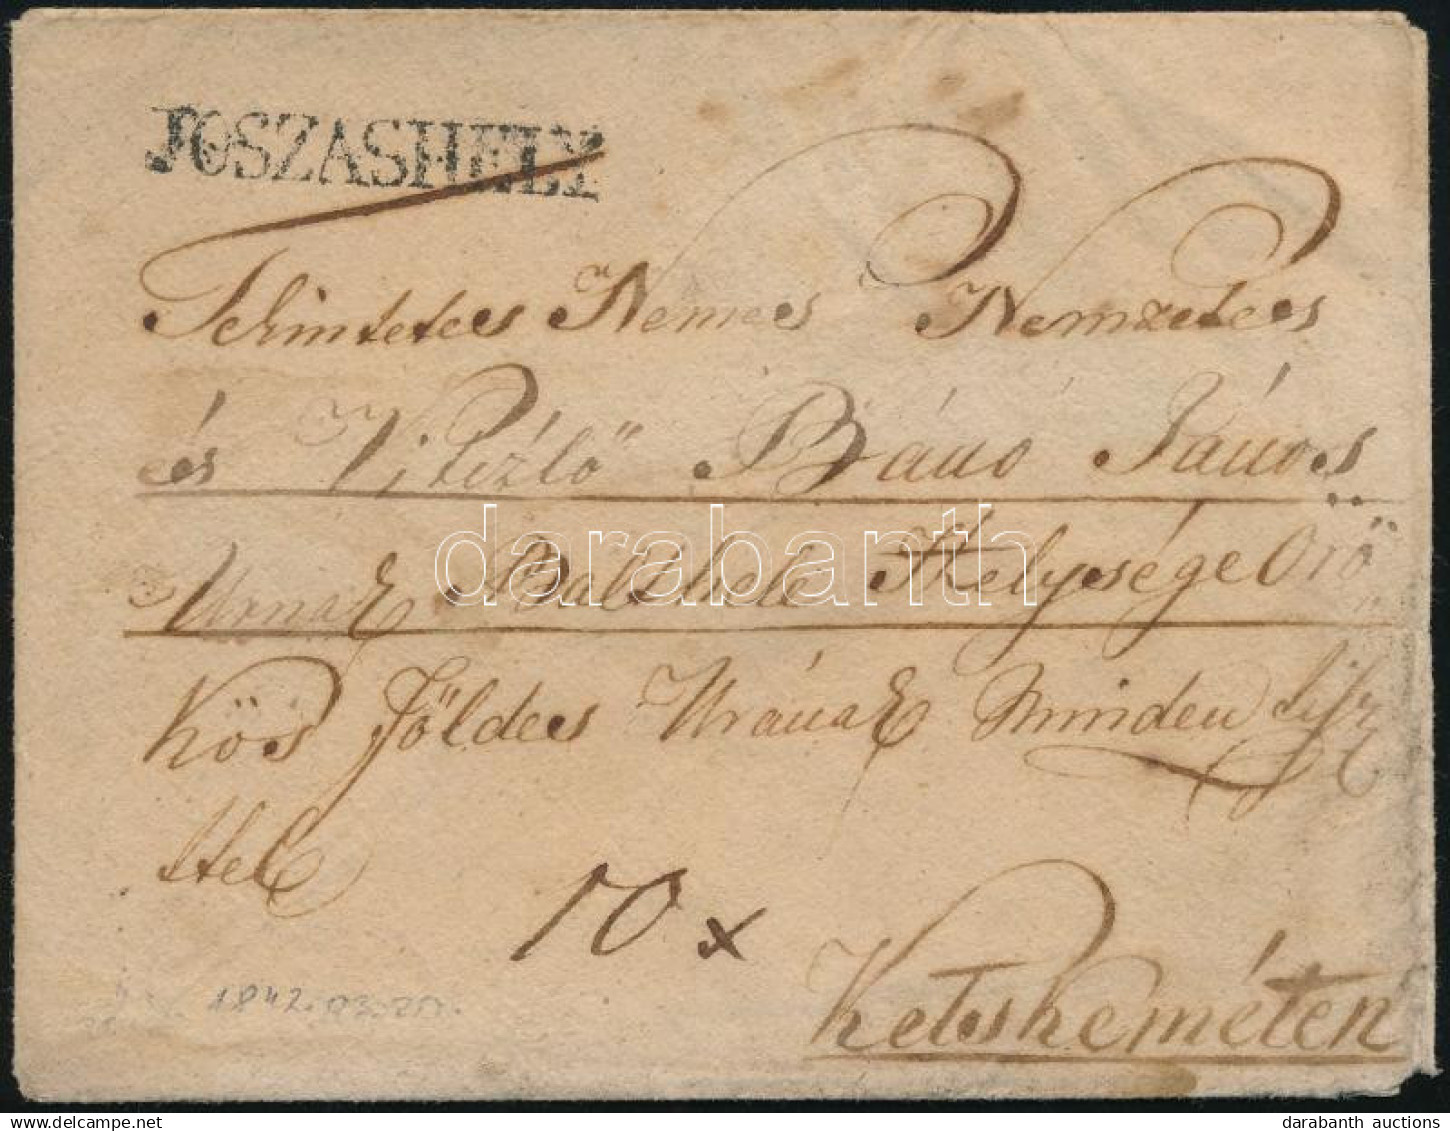 JOSZASHELY
Tekintetes Nemes Nemzetes
és Vitézlő Bánó János
Urnak Helysége Örö
kös földes Urának minden tisz
tel
10 x
Ketskeméten
1842.03.20.
darabanth
darabanth auctions